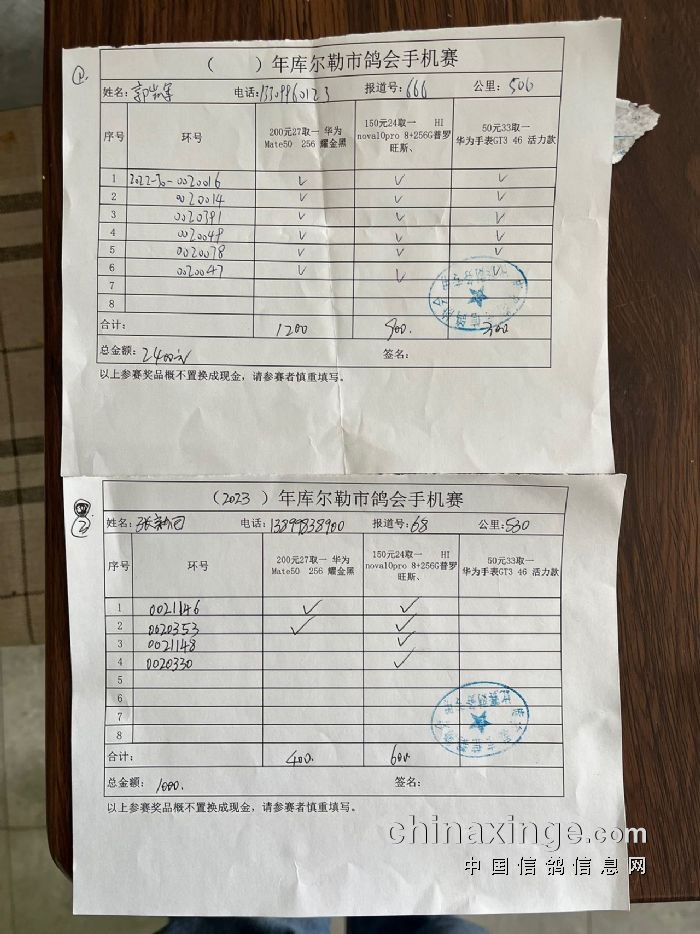 ( ) 年库尔勒市鸽会手机赛
姓名: 电话: 13309960123 报道号: 666 公里: 506
序号 环号 200元27取一 华为Mate50 256 曜金黑 150元24取一 HI nova10pro 8+256G普罗旺斯、 50元33取一 华为手表GT3 46 活力款
1 2022-30-0020016 ✓ ✓ ✓
2 0020014 ✓ ✓ ✓
3 0020391 ✓ ✓ ✓
4 0020049 ✓ ✓ ✓
5 0020078 ✓ ✓ ✓
6 0020047 ✓ ✓ ✓
7
8
合计: 1200 900. 300
总金额: 2400元 签名:
以上参赛奖品概不置换成现金，请参赛者慎重填写。
2
(2023 ) 年库尔勒市鸽会手机赛
姓名: 电话: 13899838900 报道号: 68 公里: 530
序号 环号 200元27取一 华为Mate50 256 曜金黑 150元24取一 HI nova10pro 8+256G普罗旺斯、 50元33取一 华为手表GT3 46 活力款
1 0021146 ✓ ✓
2 0020353 ✓ ✓
3 0021148 ✓
4 0020330 ✓
5
6
7
8
合计: 400. 600.
总金额: 1000. 签名:
以上参赛奖品概不置换成现金，请参赛者慎重填写。
chinaxinge.com
中国信鸽信息网